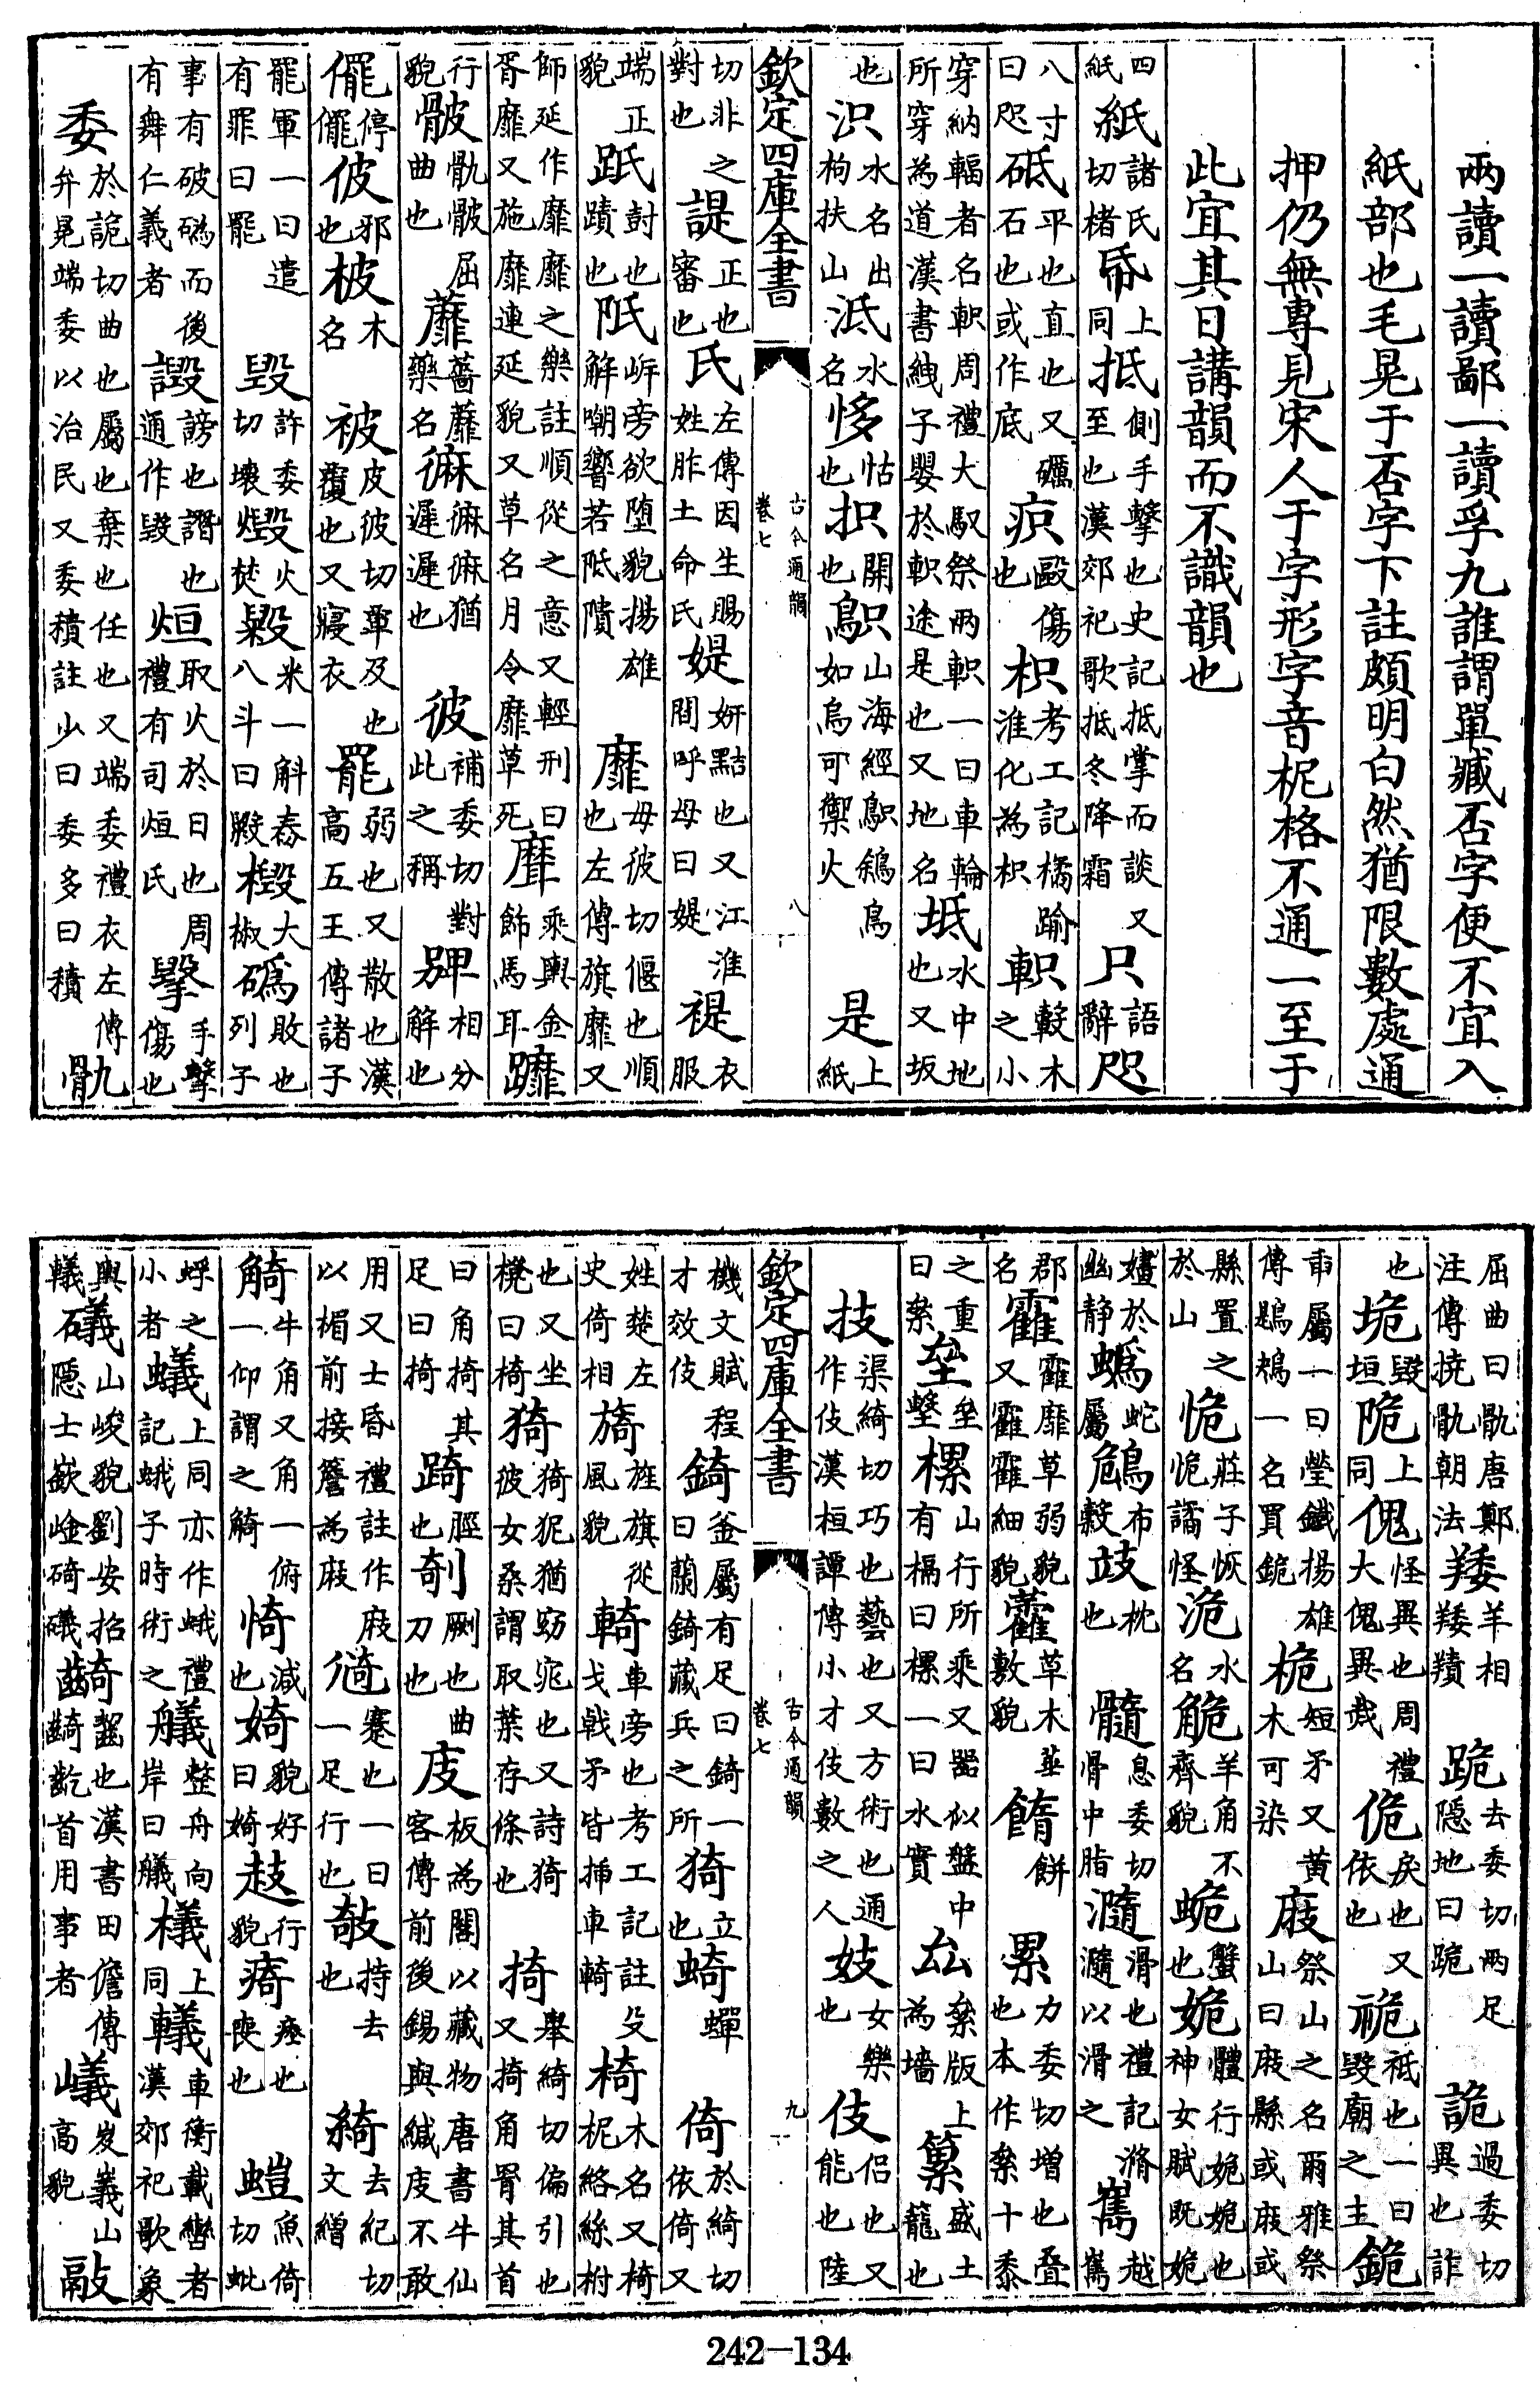 兩讀一讀鄙一讀孚九誰謂單臧否字便不宜入
紙部也毛晃于否字下註頗明白然猶限數處通
押仍無專見宋人于字形字音柅格不通一至于
此宜其日講韻而不識韻也
四紙 紙諸氏切楮帋上同抵側手擊也史記抵掌而談又至也漢郊祀歌抵冬降霜只語辭咫
八寸曰咫砥平也直也又礪石也或作底疻毆傷也枳考工記橘踰淮化為枳軹轂木之小
穿納輻者名軹周禮大馭祭兩軹一曰車輪所穿為道漢書絏子嬰於軹途是也又地名坻水中地也又坂
也沢水名出枸扶山泜水名恀怙也抧開也山海經鳥如烏可禦火是上紙
欽定四庫全書 古今通韻 卷七 八
切非之對也諟正也審也氏左傳因生賜姓胙土命氏媞妍黠也又江淮間呼母曰媞禔衣服
端正貌䟡封也蹟也阺㟁旁欲墮貌揚雄解嘲響若阺隤靡毋彼切偃也順也左傳旗靡又
師延作靡靡之樂註順從之意又輕刑曰胥靡又施靡連延貌又草名月令靡草死乘輿金飾馬耳
行貌骳骫骳屈曲也蘼薔蘼藥名㣆㣆猶遲遲也彼補委切對此之稱相分解也
停䎱彼邪也柀木名被皮彼切覃及也覆也又寢衣罷弱也又散也漢高五王傳諸子
罷軍一曰遣有罪曰罷毀許委切壞燬火焚毇米一斛舂八斗曰毇檓大椒䃣敗也列子
事有破䃣而後有舞仁義者譭謗也譖也通作毀烜取火於日也周禮有司烜氏擊手擊傷也
委於詭切曲也屬也棄也任也又端委禮衣左傳弁冕端委以治民又委積註少曰委多曰積骫
屈曲曰骫唐鄭注傳撓骫朝法羊相羵跪去委切兩足隱地曰跪詭過委切異也詐
也垝毀垣陒上同傀怪異也周禮大傀異烖佹戾也又依也祪祧也一曰毀廟之主鈍
臿屬一曰瑩鐵揚雄傳鶗鴂一名買鵤桅短矛又黃木可染庪祭山之名爾雅祭山曰庪縣或庪或
縣置之於山恑莊子恢恑譎怪洈水名觤羊角不齊貌蛫蟹也姽體行姽姽也神女賦既姽
嫿於幽靜蟡蛇屬布縠攱枕也髓息委切骨中脂瀡滑也禮記滫瀡以滑之嶲越巂
郡名靃靃靡草弱貌又靃靃細貌草木華敷貌䭉餅累力委切增也疊也本作絫十黍
之重曰絫垒垒墼樏山行所乘又器似盤中有槅曰樏一曰水實厽絫版為墻蔂盛土籠也
技渠綺切巧也藝也又方術也通作伎漢桓譚傳小才伎數之人妓女樂也伎侶也又能也陸
欽定四庫全書 古今通韻 卷七 九
機文賦程才效伎錡釜屬有足曰錡一曰蘭錡藏兵之所立也蟬倚於綺切依倚又
姓楚左史倚相旖旌旗從風貌輢車旁也考工記註殳戈戟矛皆插車輢椅木名又柅絡絲柎椅
也又坐櫈曰椅猗猗狔猶窈窕也又詩猗彼女桑謂取葉存條也掎舉綺切偏引也又掎角胥其首
曰角掎其足曰掎踦脛也剞劂也曲刀也庋板為閣以藏物唐書牛仙客傳前後錫與緘庋不敢
用又士昏禮註作庪以楣前接簷為庪蹇也一曰一足行也攲持去也綺去紀切文繒
觭牛角又角一俯一仰謂之觭減也婍貌好曰婍行貌瘂也喪也螘魚倚切蚍
蜉之小者蟻上同亦作蛾禮記蛾子時術之艤整舟向岸曰艤檥上同轙車衡載轡者漢郊祀歌象
輿轙礒山峻貌劉安招隱士嶔崟碕礒齮齧也漢書田儋傳齮齕首用事者嶬峩嶬山高貌敲
242-134